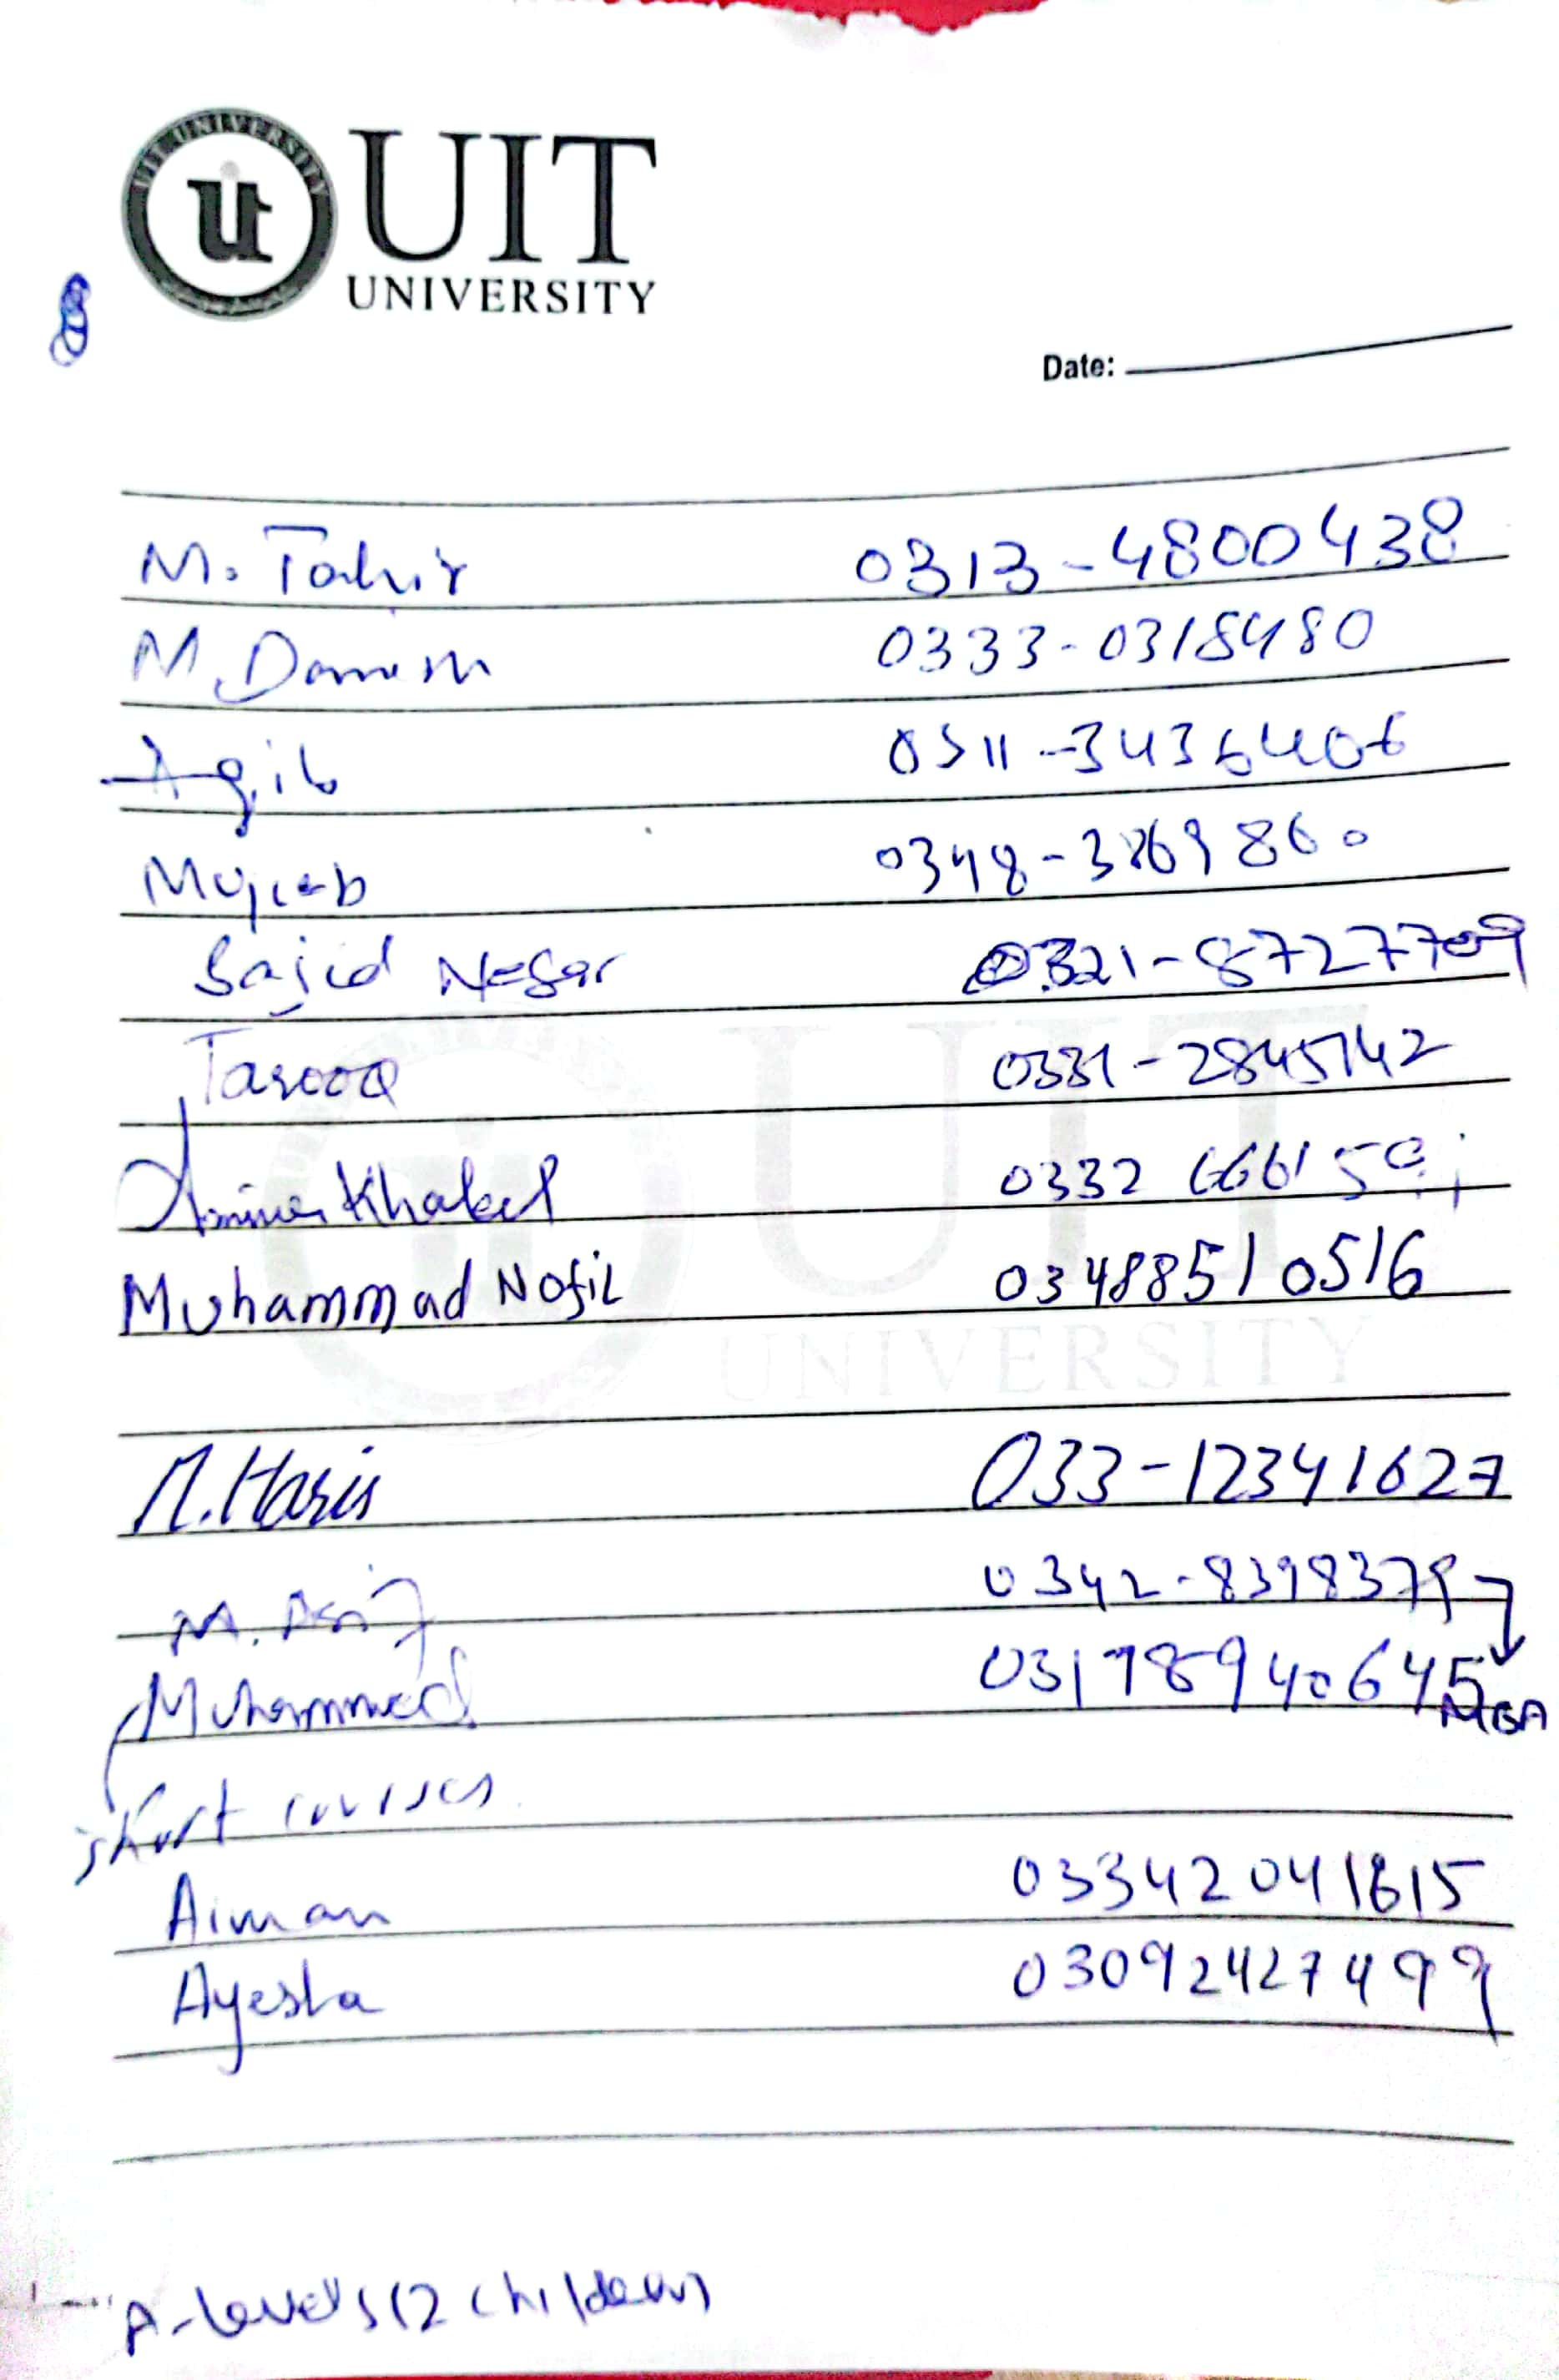 UIT UNIVERSITY
uit
UIT
UNIVERSITY
Date:
M. Tahir 0313-4800438
M. Danish 0333-0318480
Aqib 0311-3436406
Mujeeb 0348-3869860
Sajid Nesar 0321-8727709
Tarooq 0331-2845142
Khaleel 0332
Muhammad Nofil 03488510516
M. Haris 033-12341627
M. Asif 0342-8398379
Muhammad 03178940645
MBA
short courses
Aiman 03342041815
Ayesha 03092427499
A-levels (2 children)